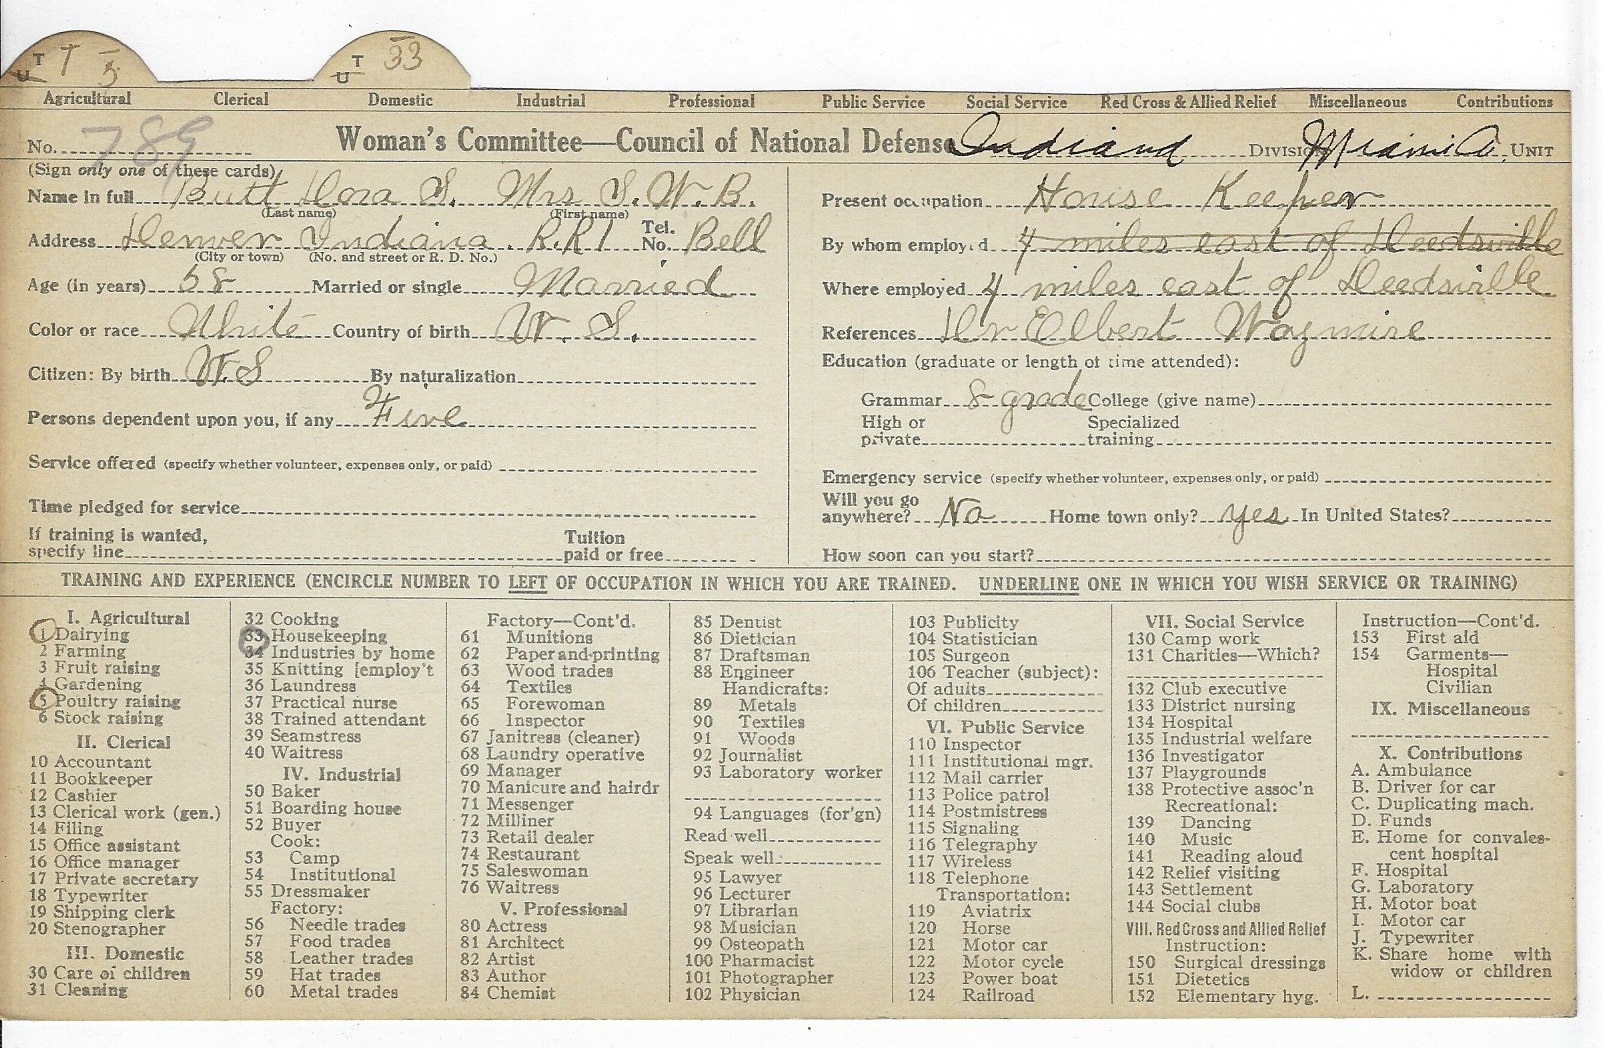 T 1 5 T 33
U U
Agricultural Clerical Domestic Industrial Professional Public Service Social Service Red Cross & Allied Relief Miscellaneous Contributions
No. 789 Woman's Committee—Council of National Defense Indiana DIVISION Miami Co. UNIT
(Sign only one of these cards)
Name in full Butt Dora S. Mrs S. W. B.
(Last name) (First name)
Address Denver Indiana. R.R 1 Tel. No. Bell
(City or town) (No. and street or R. D. No.)
Age (in years) 58 Married or single Married
Color or race White Country of birth U. S.
Citizen: By birth U S By naturalization
Persons dependent upon you, if any Five
Service offered (specify whether volunteer, expenses only, or paid)
Time pledged for service
If training is wanted,
specify line
Tuition
paid or free
Present occupation House Keeper
By whom employed 4 miles east of Deedsville
Where employed 4 miles east of Deedsville
References Dr Elbert Waymire
Education (graduate or length of time attended):
Grammar 8 grade College (give name)
High or
private
Specialized
training
Emergency service (specify whether volunteer, expenses only, or paid)
Will you go
anywhere? No Home town only? yes In United States?
How soon can you start?
TRAINING AND EXPERIENCE (ENCIRCLE NUMBER TO LEFT OF OCCUPATION IN WHICH YOU ARE TRAINED. UNDERLINE ONE IN WHICH YOU WISH SERVICE OR TRAINING)
I. Agricultural
1 Dairying
2 Farming
3 Fruit raising
4 Gardening
5 Poultry raising
6 Stock raising
II. Clerical
10 Accountant
11 Bookkeeper
12 Cashier
13 Clerical work (gen.)
14 Filing
15 Office assistant
16 Office manager
17 Private secretary
18 Typewriter
19 Shipping clerk
20 Stenographer
III. Domestic
30 Care of children
31 Cleaning
32 Cooking
33 Housekeeping
34 Industries by home
35 Knitting [employ't
36 Laundress
37 Practical nurse
38 Trained attendant
39 Seamstress
40 Waitress
IV. Industrial
50 Baker
51 Boarding house
52 Buyer
Cook:
53 Camp
54 Institutional
55 Dressmaker
Factory:
56 Needle trades
57 Food trades
58 Leather trades
59 Hat trades
60 Metal trades
Factory—Cont'd.
61 Munitions
62 Paper and printing
63 Wood trades
64 Textiles
65 Forewoman
66 Inspector
67 Janitress (cleaner)
68 Laundry operative
69 Manager
70 Manicure and hairdr
71 Messenger
72 Milliner
73 Retail dealer
74 Restaurant
75 Saleswoman
76 Waitress
V. Professional
80 Actress
81 Architect
82 Artist
83 Author
84 Chemist
85 Dentist
86 Dietician
87 Draftsman
88 Engineer
Handicrafts:
89 Metals
90 Textiles
91 Woods
92 Journalist
93 Laboratory worker
94 Languages (for'gn)
Read well
Speak well
95 Lawyer
96 Lecturer
97 Librarian
98 Musician
99 Osteopath
100 Pharmacist
101 Photographer
102 Physician
103 Publicity
104 Statistician
105 Surgeon
106 Teacher (subject):
Of adults
Of children
VI. Public Service
110 Inspector
111 Institutional mgr.
112 Mail carrier
113 Police patrol
114 Postmistress
115 Signaling
116 Telegraphy
117 Wireless
118 Telephone
Transportation:
119 Aviatrix
120 Horse
121 Motor car
122 Motor cycle
123 Power boat
124 Railroad
VII. Social Service
130 Camp work
131 Charities—Which?
132 Club executive
133 District nursing
134 Hospital
135 Industrial welfare
136 Investigator
137 Playgrounds
138 Protective assoc'n
Recreational:
139 Dancing
140 Music
141 Reading aloud
142 Relief visiting
143 Settlement
144 Social clubs
VIII. Red Cross and Allied Relief
Instruction:
150 Surgical dressings
151 Dietetics
152 Elementary hyg.
Instruction—Cont'd.
153 First aid
154 Garments—
Hospital
Civilian
IX. Miscellaneous
X. Contributions
A. Ambulance
B. Driver for car
C. Duplicating mach.
D. Funds
E. Home for convales-
cent hospital
F. Hospital
G. Laboratory
H. Motor boat
I. Motor car
J. Typewriter
K. Share home with
widow or children
L.